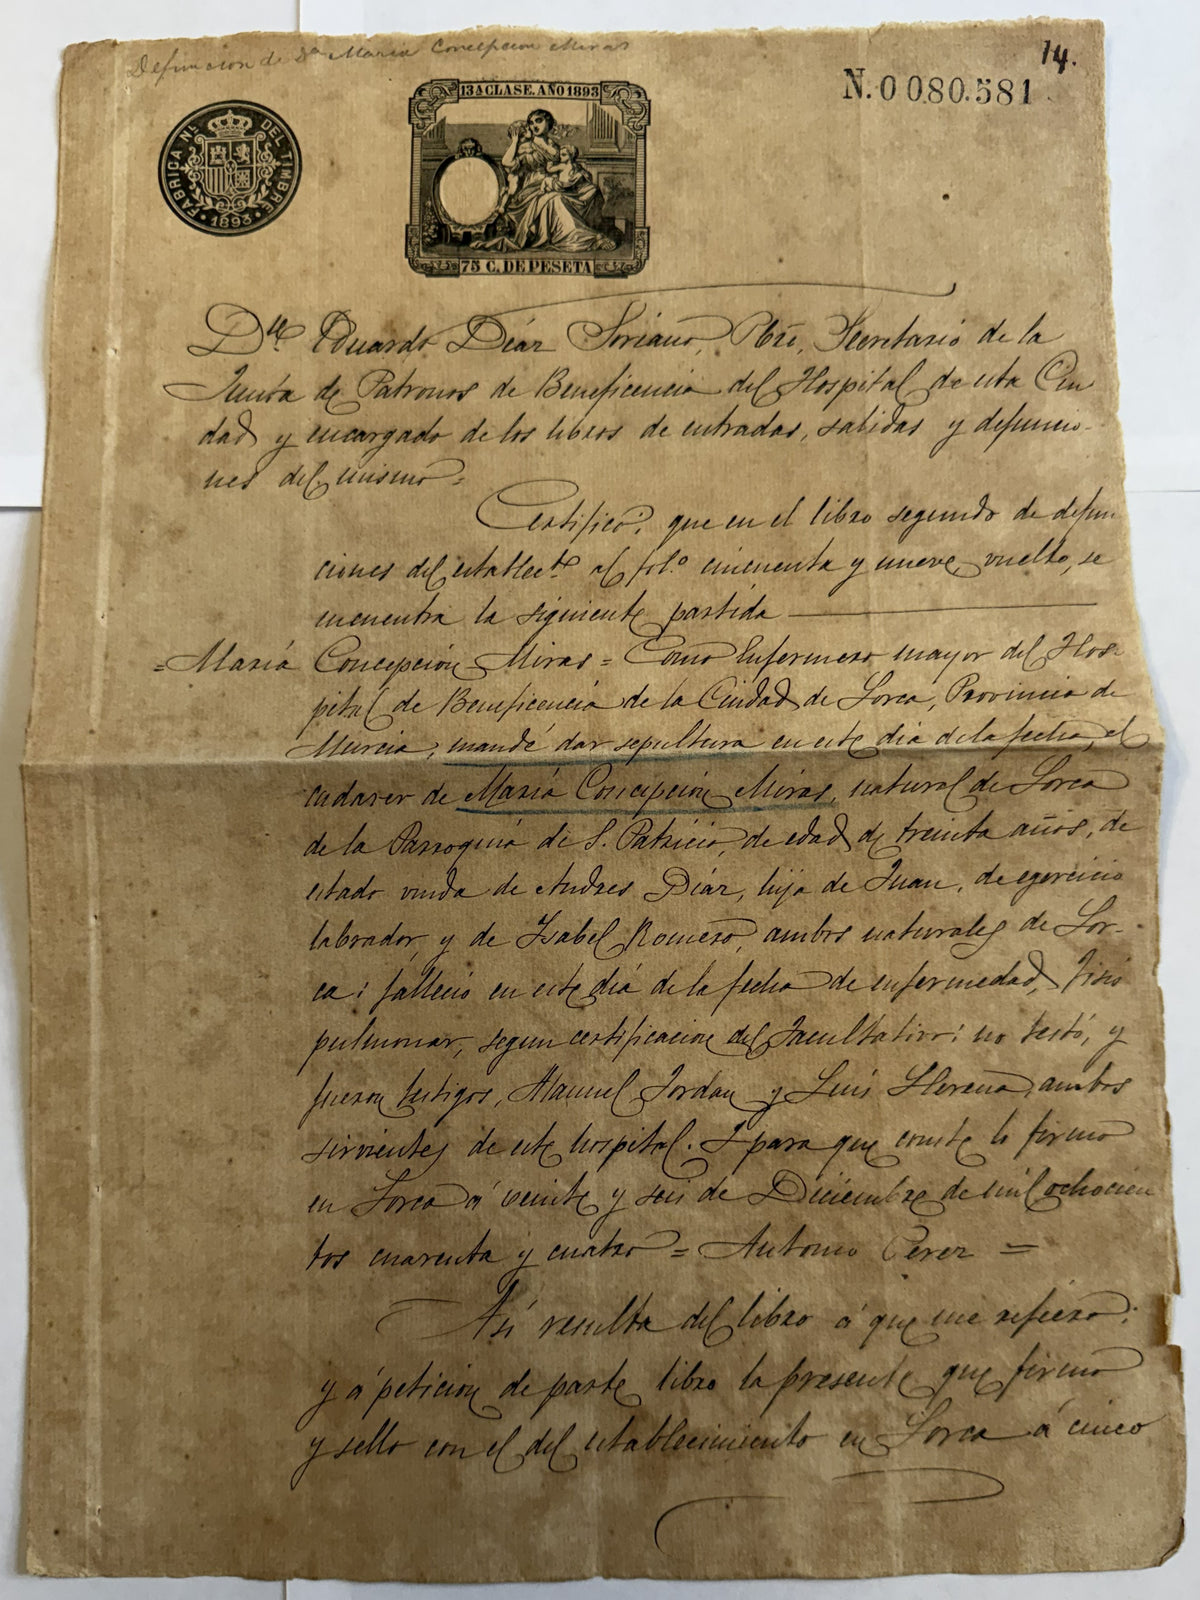 Defunción de Dª María Concepción Miras
14.
N.0 080.581
13ª CLASE. AÑO 1893
FABRICA Nˡ DEL TIMBRE
1893
75 C. DE PESETA
Dⁿ Eduardo Díaz Soriano, Pbrō, Secretario de la
Junta de Patronos de Beneficencia del Hospital de esta Ciu
dad y encargado de los libros de entradas, salidas y defuncio-
nes del mismo =
Certifico: que en el libro segundo de defun
ciones del establectº al folº cincuenta y nueve vuelto, se
encuentra la siguiente partida
= María Concepción Miras = Como Enfermero mayor del Hos-
pital de Beneficencia de la Ciudad de Lorca, Provincia de
Murcia, mandé dar sepultura en este dia de la fecha, el
cadaver de María Concepción Miras, natural de Lorca
de la Parroquia de S. Patricio, de edad de treinta años, de
estado viuda de Andres Díaz, hija de Juan, de ejercicio
labrador, y de Ysabel Romero, ambos naturales de Lor-
ca: falleció en este día de la fecha de enfermedad, Tisis
pulmonar, segun certificacion del Facultativo: no testó, y
fueron testigos, Manuel Jordan y Luis Llerena, ambos
sirvientes de este hospital. Y para que conste lo firmo
en Lorca á veinte y seis de Diciembre de mil ochocien
tos cuarenta y cuatro = Antonio Perez =
Así resulta del libro á que me refiero:
y á petición de parte libro la presente que firmo
y sello con el del establecimiento en Lorca á cinco